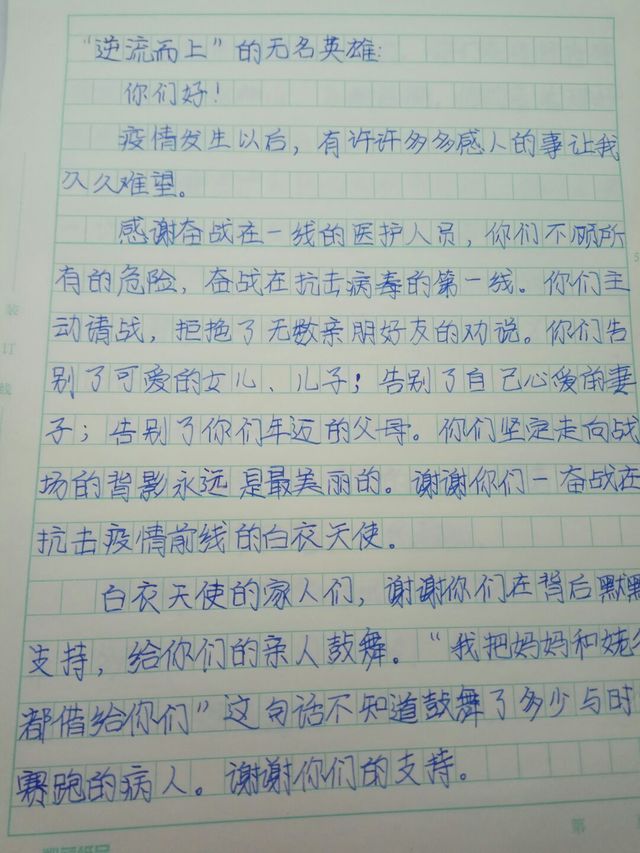 “逆流而上”的无名英雄:
你们好!
疫情发生以后，有许许多多感人的事让我
久久难望。
感谢奋战在一线的医护人员，你们不顾所
有的危险，奋战在抗击病毒的第一线。你们主
动请战，拒拖了无数亲朋好友的劝说。你们告
别了可爱的女儿、儿子；告别了自己心爱的妻
子；告别了你们年迈的父母。你们坚定走向战
场的背影永远是最美丽的。谢谢你们一奋战在
抗击疫情前线的白衣天使。
白衣天使的家人们，谢谢你们在背后默默
支持，给你们的亲人鼓舞。“我把妈妈和姥
都借给你们”这句话不知道鼓舞了多少与时
赛跑的病人。谢谢你们的支持。
装
订
线
第